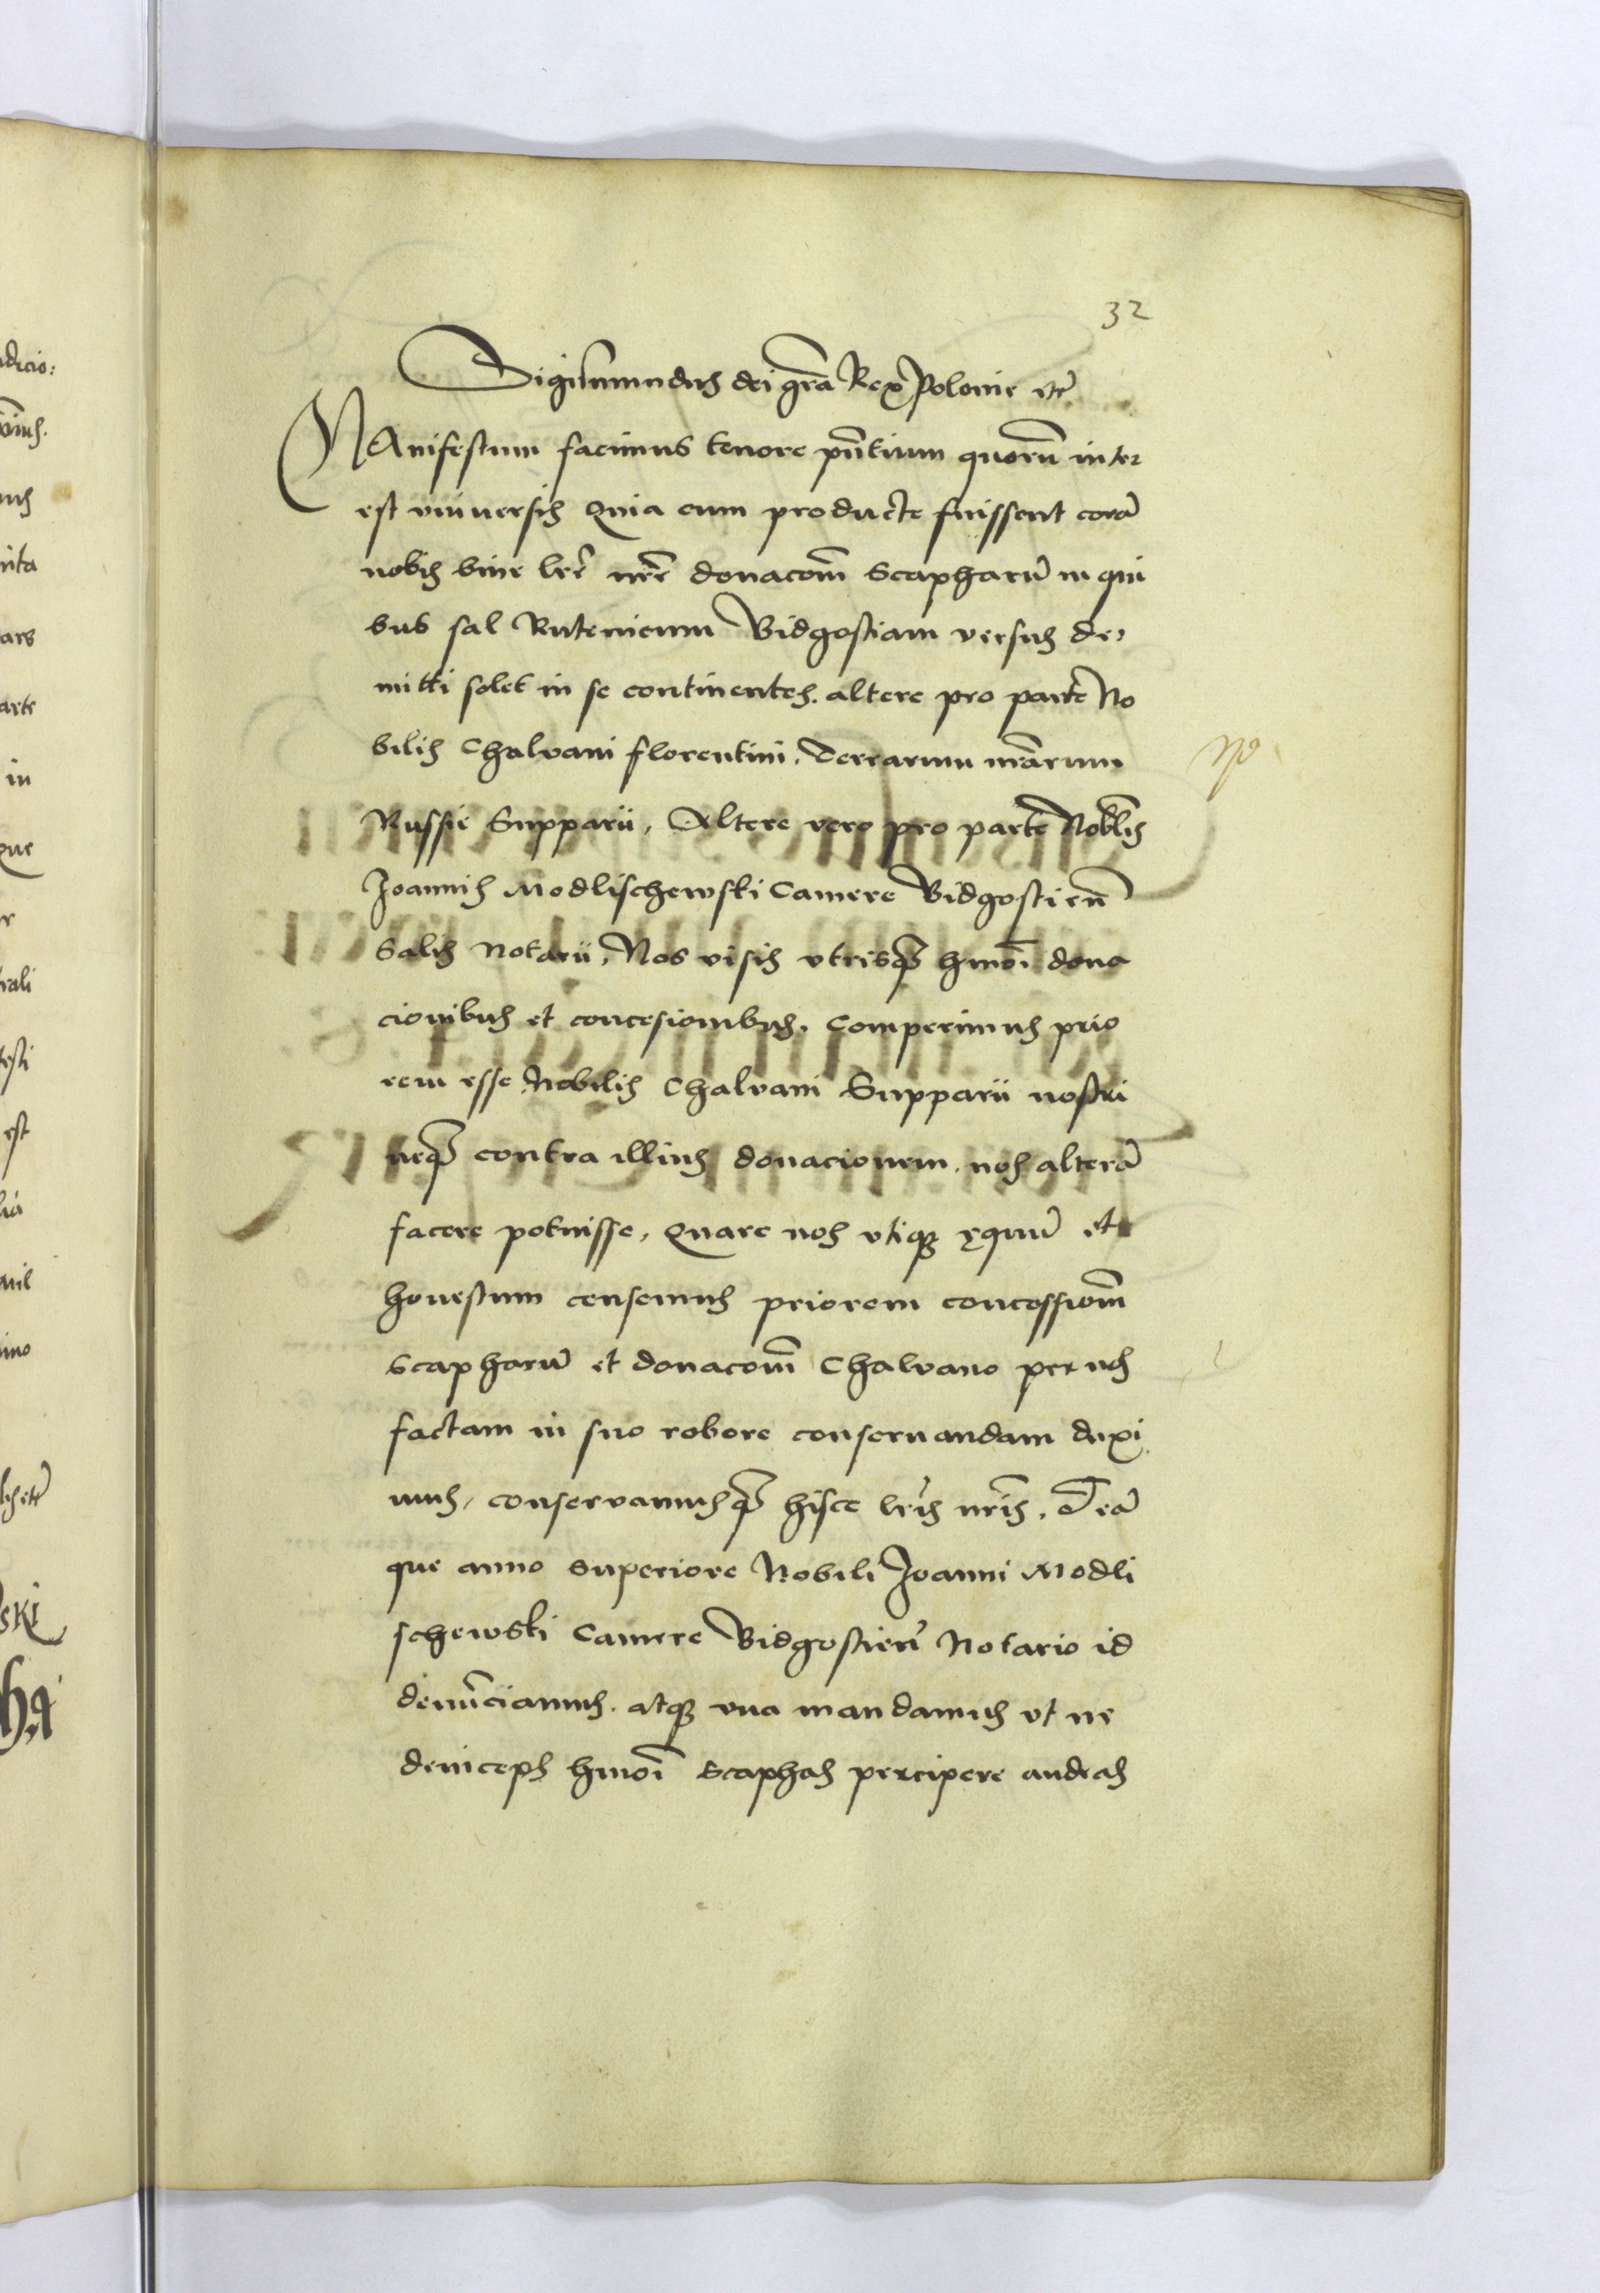 32
Sigismundus dei gra͠ Rex Polonie etc̃
MAnifestum facimus tenore pn̄tium quoru͂ inter
est vniuersis Quia cum producte fuissent cora͂
nobis bine lr̃e nr̃e donaco͠m Scapharu͂ in qui
bus sal Rutenicum Bidgostiam versus de,
mitti solet in se continentes. altere pro parte No
bilis Chalvani florentini. terrarum nr̃arum
Russie Supparii, Altere vero pro parte Nobl̃is
Joannis Modlischewski Camere Bidgostien̄
Salis Notarii, Nos visis vtrisq3 hmoi͠ dona
cionibus et concesionibus. Comperimus prio
rem esse Nobilis Chalvani Supparii nostri
neq3 contra illius donacionem. nos altera͂
facere potuisse, Quare nos vtiq3 ęquu͂ et
honestum censemus priorem concessio͠m
Scapharu͂ et donaco͠m Chalvano per nos
factam in suo robore conseruandam duxi
mus, conservamusq3 hisce lr̃is nr̃is. Dea͂
que anno superiore Nobili Joanni Modli
schewski Camere Bidgostien̄ Notario id
denu͂ciamus. atq3 vna mandamus vt ne
deinceps hmoi͠ Scaphas percipere audeas